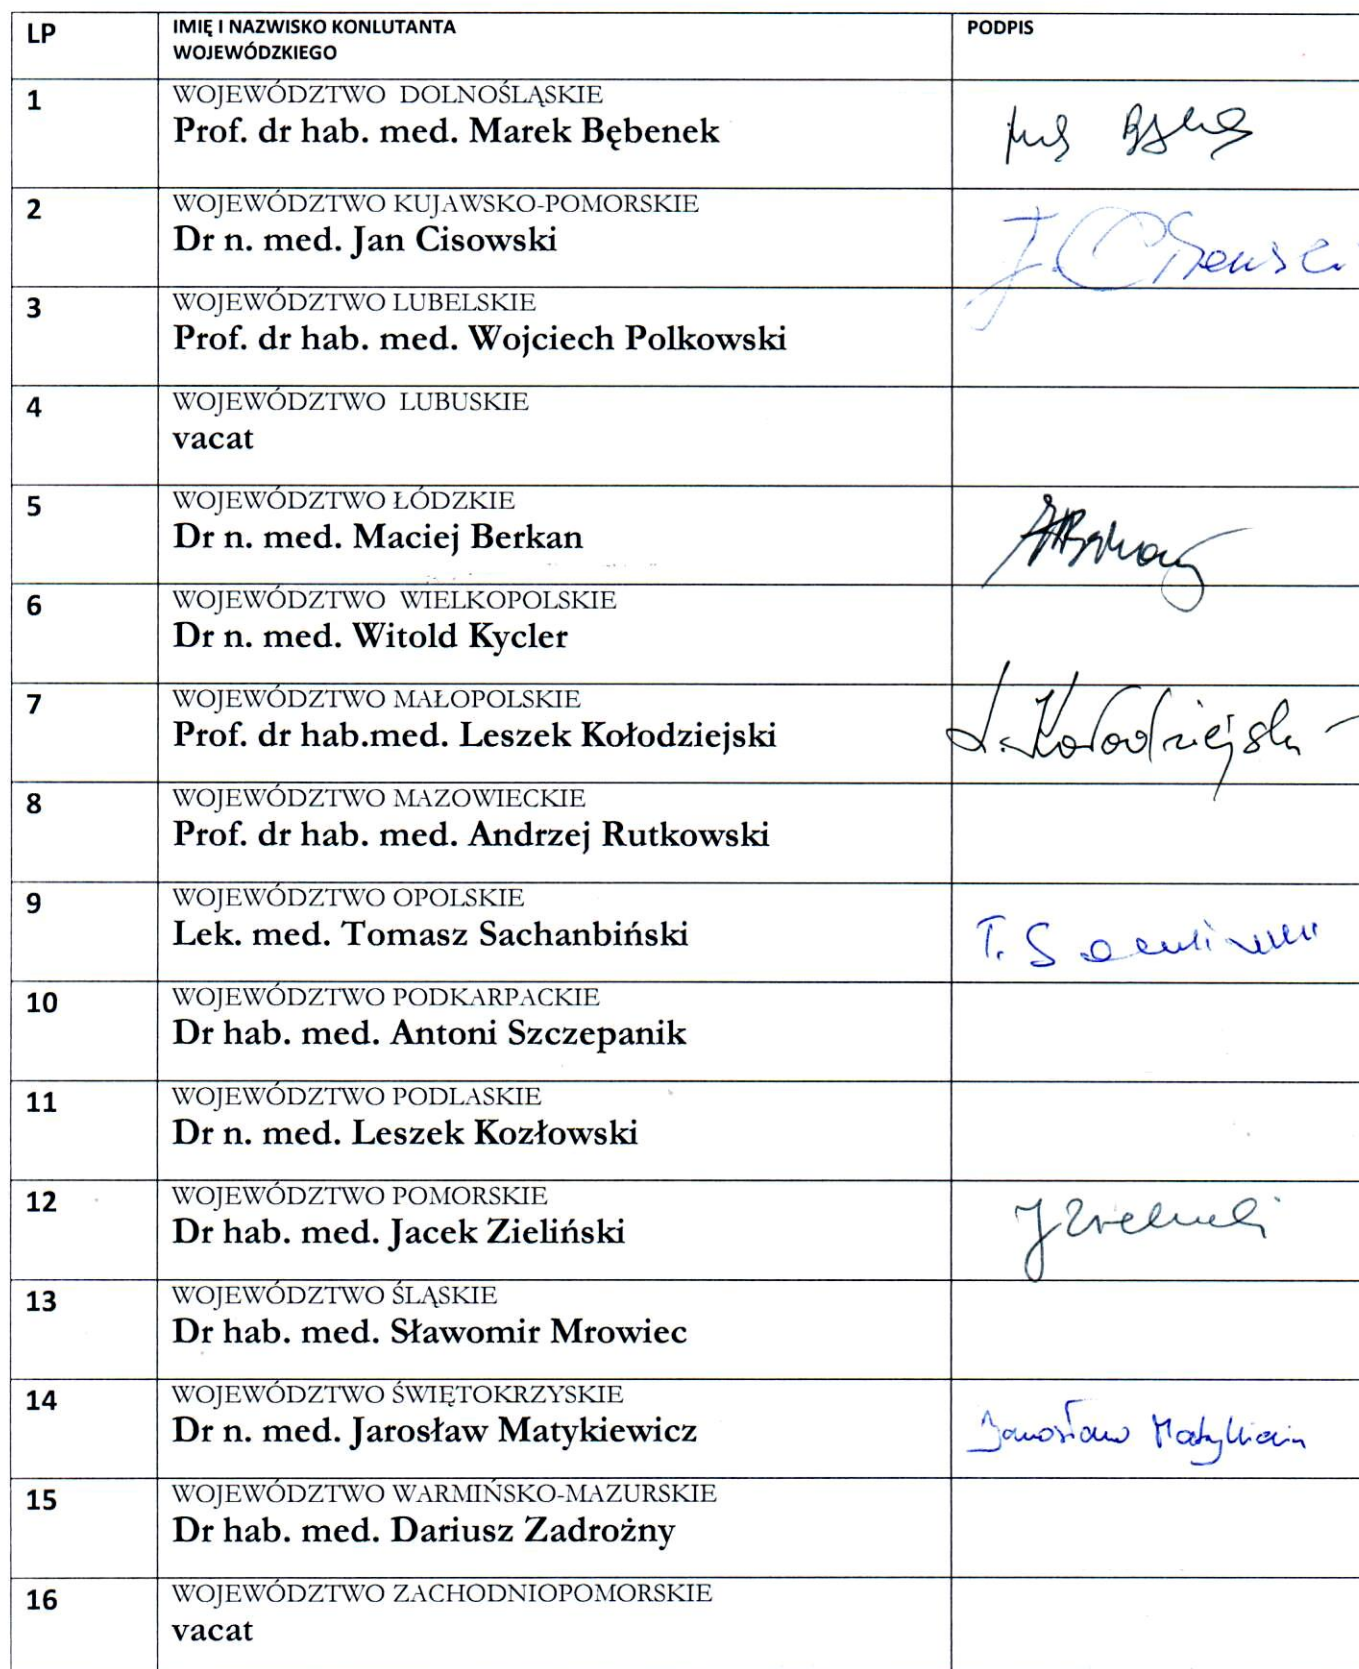 LP IMIĘ I NAZWISKO KONLUTANTA PODPIS
WOJEWÓDZKIEGO
1 WOJEWÓDZTWO DOLNOŚLĄSKIE
Prof. dr hab. med. Marek Bębenek
2 WOJEWÓDZTWO KUJAWSKO-POMORSKIE
Dr n. med. Jan Cisowski
J. Cisowski
3 WOJEWÓDZTWO LUBELSKIE
Prof. dr hab. med. Wojciech Polkowski
4 WOJEWÓDZTWO LUBUSKIE
vacat
5 WOJEWÓDZTWO ŁÓDZKIE
Dr n. med. Maciej Berkan
6 WOJEWÓDZTWO WIELKOPOLSKIE
Dr n. med. Witold Kycler
7 WOJEWÓDZTWO MAŁOPOLSKIE
Prof. dr hab.med. Leszek Kołodziejski
L. Kołodziejski
8 WOJEWÓDZTWO MAZOWIECKIE
Prof. dr hab. med. Andrzej Rutkowski
9 WOJEWÓDZTWO OPOLSKIE
Lek. med. Tomasz Sachanbiński
10 WOJEWÓDZTWO PODKARPACKIE
Dr hab. med. Antoni Szczepanik
11 WOJEWÓDZTWO PODLASKIE
Dr n. med. Leszek Kozłowski
12 WOJEWÓDZTWO POMORSKIE
Dr hab. med. Jacek Zieliński
J Zieliński
13 WOJEWÓDZTWO ŚLĄSKIE
Dr hab. med. Sławomir Mrowiec
14 WOJEWÓDZTWO ŚWIĘTOKRZYSKIE
Dr n. med. Jarosław Matykiewicz
Jarosław Matykiewicz
15 WOJEWÓDZTWO WARMIŃSKO-MAZURSKIE
Dr hab. med. Dariusz Zadrożny
16 WOJEWÓDZTWO ZACHODNIOPOMORSKIE
vacat